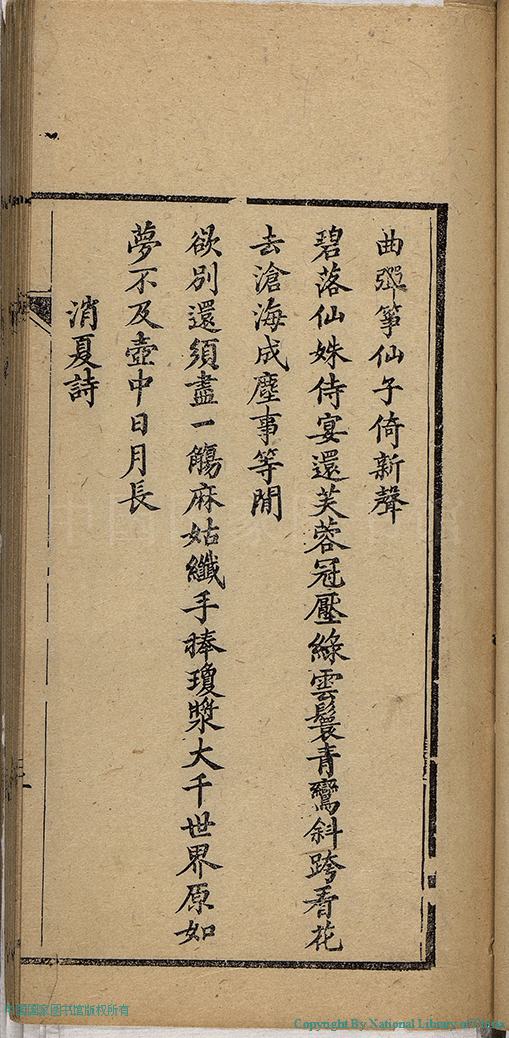 曲彈筝仙子倚新聲
碧落仙姝侍宴還芙蓉冠壓綠雲鬟青鸞斜跨看花
去滄海成塵事等閒
欲別還須盡一觴麻姑纖手捧瓊漿大千世界原如
夢不及壺中日月長
消夏詩
中国国家图书馆版权所有
Copyright By National Library of China